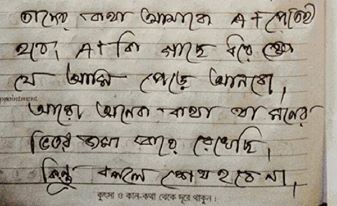 তাদের কথা আমাকে A+ পেতেই
হবে। A+ কি গাছে ধরে
যে আমি পেড়ে আনবো।
appointment
আরো অনেক কথা যা মনের
ভিতর জমা করে রেখেছি।
কিন্তু বললে শেষ হবে না।
কুৎসা ও কান-কথা থেকে দূরে থাকুন।